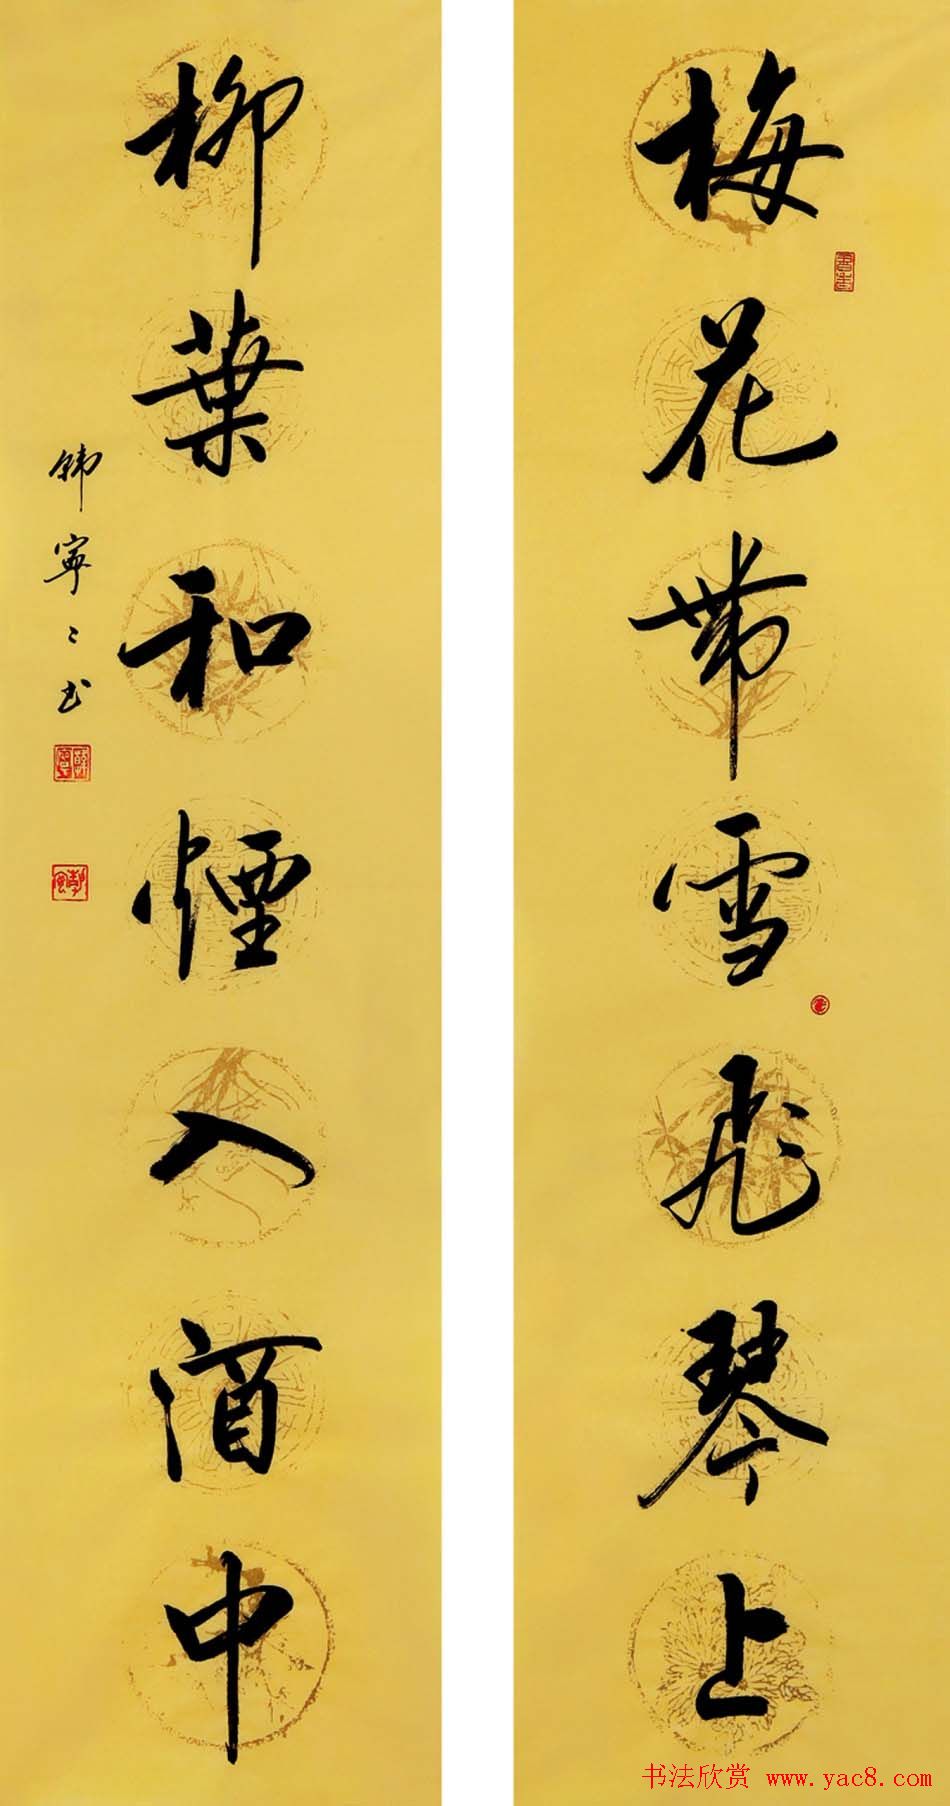 梅花带雪飛琴上
柳葉和煙入酒中
韩寧寧书
书法欣赏 www.yac8.com